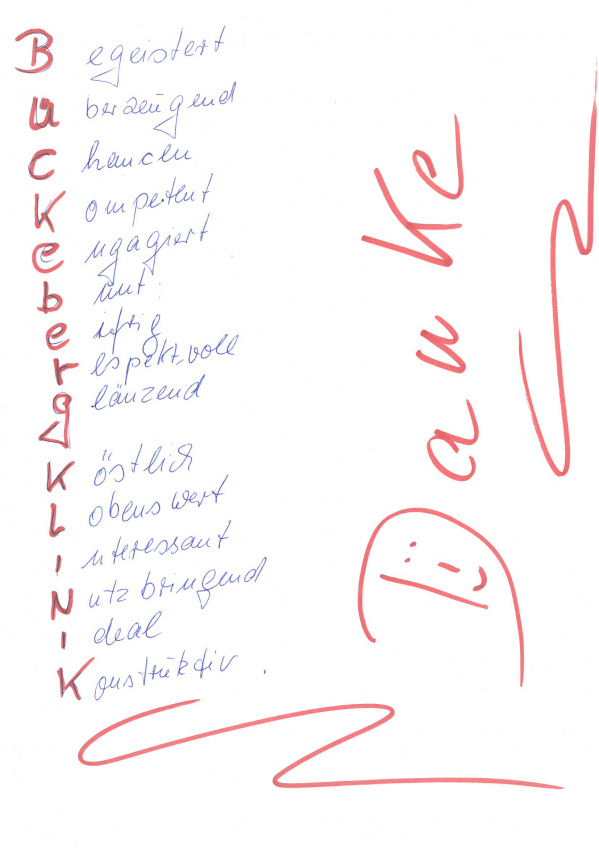 Begeistert
Uberzeugend
Chancen
Kompetent
engagiert
bunt
eifrig
respektvoll
glänzend
Köstlich
Lobenswert
Interessant
Nutzbringend
Ideal
Konstruktiv.
Danke